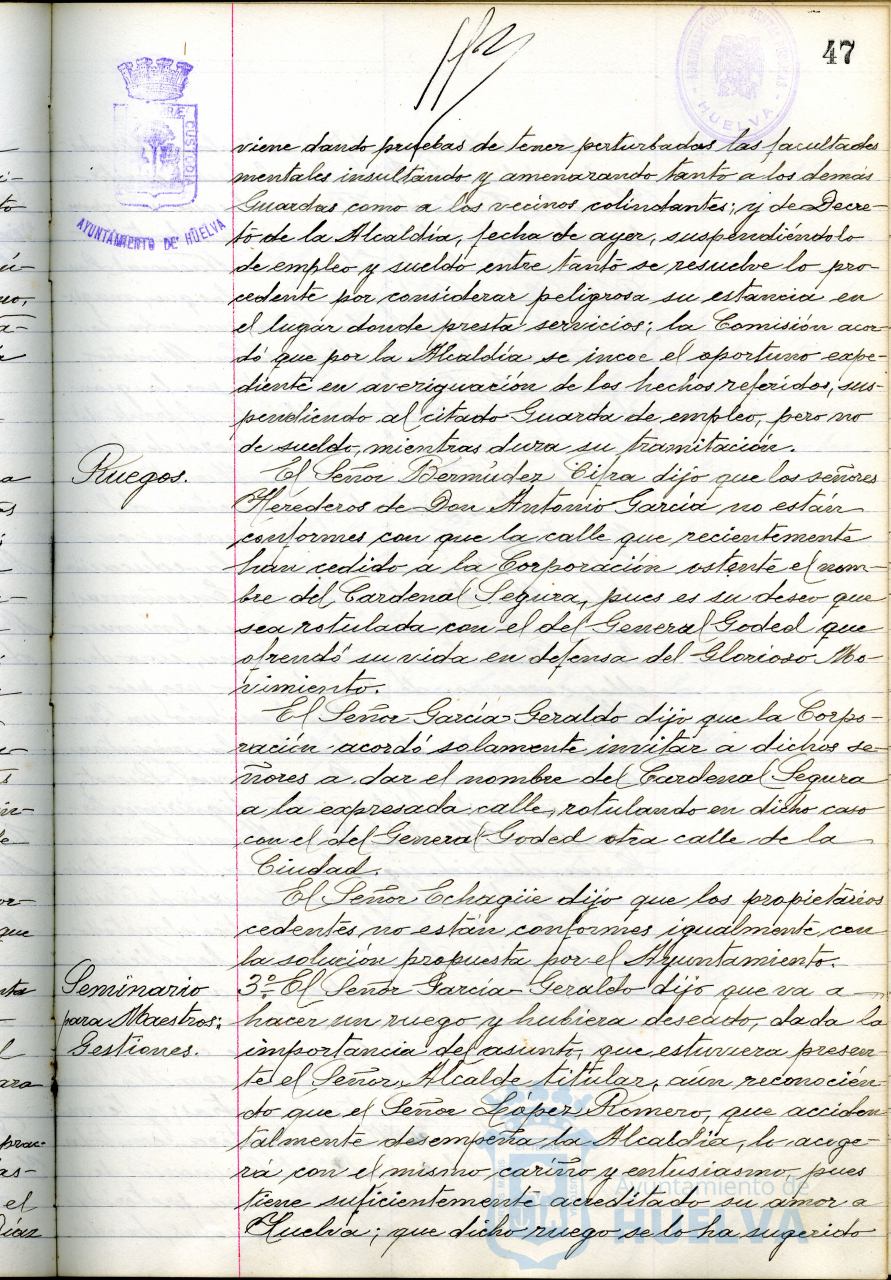 47
ADMINISTRACIÓN DE RENTAS PÚBLICAS
- HUELVA -
CUSTODIA
AYUNTAMIENTO DE HUELVA
viene dando pruebas de tener perturbadas las facultades
mentales insultando y amenazando tanto a los demás
Guardas como a los vecinos colindantes; y de Decre-
to de la Alcaldía, fecha de ayer, suspendiéndolo
de empleo y sueldo entre tanto se resuelve lo pro-
cedente por considerar peligrosa su estancia en
el lugar donde presta servicios; la Comisión acor-
dó que por la Alcaldía se incoe el oportuno expe-
diente en averiguación de los hechos referidos, sus-
pendiendo al citado Guarda de empleo, pero no
de sueldo, mientras dura su tramitación.
Ruegos.
El Señor Bermúdez Cifra dijo que los señores
Herederos de Don Antonio García no están
conformes con que la calle que recientemente
han cedido a la Corporación ostente el nom-
bre del Cardenal Segura, pues es su deseo que
sea rotulada con el del General Goded que
ofrendó su vida en defensa del Glorioso Mo-
vimiento.
El Señor García-Geraldo dijo que la Corpo-
ración acordó solamente invitar a dichos se-
ñores a dar el nombre del Cardenal Segura
a la expresada calle, rotulando en dicho caso
con el del General Goded otra calle de la
Ciudad.
El Señor Echagüe dijo que los propietarios
cedentes, no están conformes igualmente, con
la solución propuesta por el Ayuntamiento.
Seminario
para Maestros:
Gestiones.
3º- El Señor García-Geraldo dijo que va a
hacer un ruego y hubiera deseado, dada la
importancia del asunto, que estuviera presen-
te el Señor Alcalde titular, aún reconocién-
do que el Señor López Romero, que acciden
talmente desempeña la Alcaldía, lo acoge-
rá con el mismo cariño y entusiasmo, pues
tiene suficientemente acreditado su amor a
Huelva; que dicho ruego se lo ha sugerido
Ayuntamiento de
HUELVA